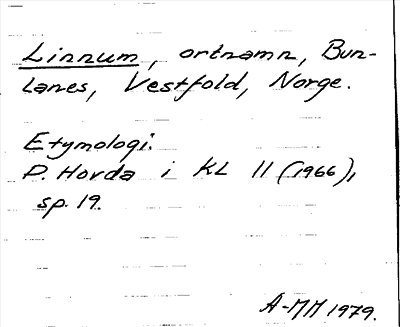 Linnum, ortnamn, Bun-
lanes, Vestfold, Norge.
Etymologi:
P. Horda i KL 11 (1966),
sp. 19.
A-MH 1979.